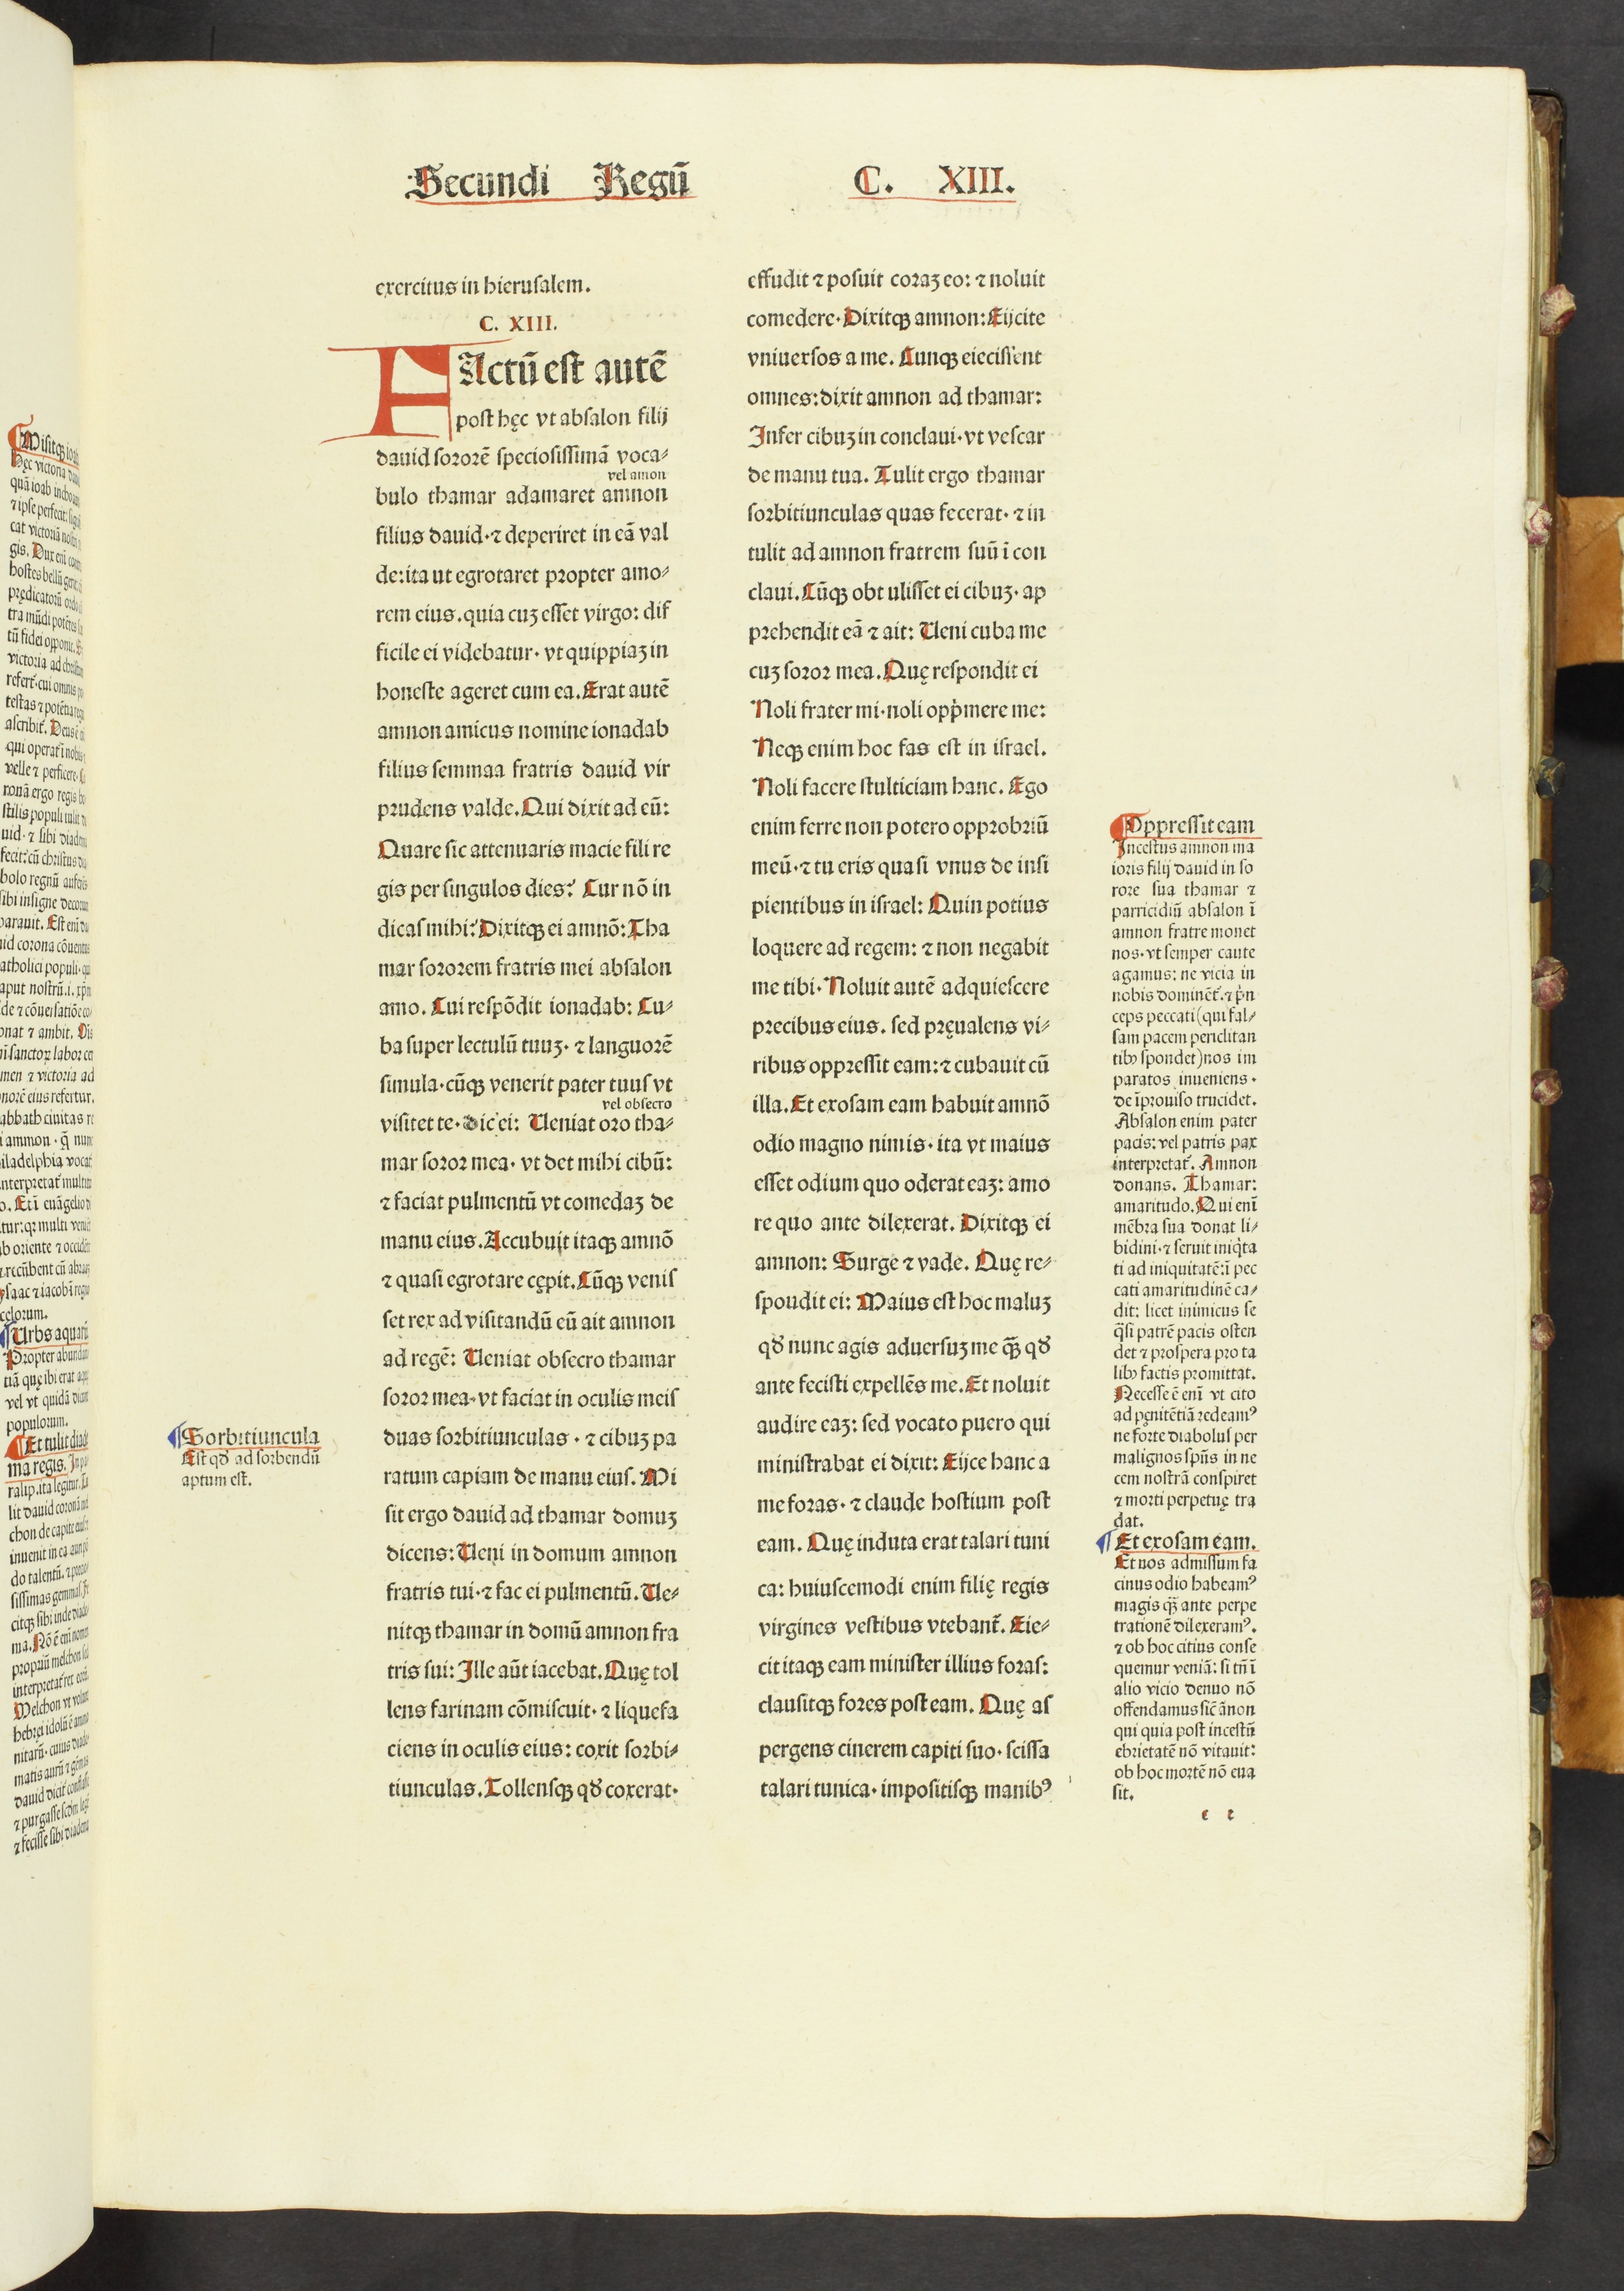 Secundi Regū C. XIII.
exercitus in hierusalem.
C. XIII.
FActū est autē
post hęc vt absalon filij
dauid sororē speciosissimā voca⸗
vel amon
bulo thamar adamaret amnon
filius dauid·⁊ deperiret in eā val
de:ita ut egrotaret propter amo⸗
rem eius.quia cuꝫ esset virgo: dif
ficile ei videbatur· vt quippiaꝫ in
honeste ageret cum ea. Erat autē
amnon amicus nomine ionadab
filius semmaa fratris dauid vir
prudens valde. Qui dixit ad eū:
Quare sic attenuaris macie fili re
gis per singulos dies? Cur nō in
dicas mihi? Dixitqꝫ ei amnō: Tha
mar sororem fratris mei absalon
amo. Cui respōdit ionadab: Cu⸗
ba super lectulū tuuꝫ· ⁊ languorē
simula·cūqꝫ venerit pater tuus vt
vel obsecro
visitet te· dic ei: Ueniat oro tha⸗
mar soror mea· vt det mihi cibū:
⁊ faciat pulmentū vt comedaꝫ de
manu eius. Accubuit itaqꝫ amnō
⁊ quasi egrotare cępit. Cūqꝫ venis
set rex ad visitandū eū ait amnon
ad regē: Ueniat obsecro thamar
soror mea· vt faciat in oculis meis
duas sorbitiunculas · ⁊ cibuꝫ pa
ratum capiam de manu eius. Mi
sit ergo dauid ad thamar domuꝫ
dicens: Ueni in domum amnon
fratris tui·⁊ fac ei pulmentū. Ue⸗
nitqꝫ thamar in domū amnon fra
tris sui: Ille aūt iacebat. Quę tol
lens farinam cōmiscuit· ⁊ liquefa
ciens in oculis eius: coxit sorbi⸗
tiunculas. Tollensqꝫ qd̄ coxerat·
Sorbitiuncula
Est qd̄ ad sorbendū
aptum est.
effudit ⁊ posuit coraꝫ eo: ⁊ noluit
comedere· Dixitqꝫ amnon: Eijcite
vniuersos a me. Cunqꝫ eiecissent
omnes:dixit amnon ad thamar:
Infer cibuꝫ in conclaui· vt vescar
de manu tua. Tulit ergo thamar
sorbitiunculas quas fecerat· ⁊ in
tulit ad amnon fratrem suū ī con
claui. Cūqꝫ obt ulisset ei cibuꝫ· ap
prehendit eā ⁊ ait: Ueni cuba me
cuꝫ soror mea. Quę respondit ei
Noli frater mi·noli opp̄mere me:
Neqꝫ enim hoc fas est in israel.
Noli facere stulticiam hanc. Ego
enim ferre non potero opprobriū
meū·⁊ tu eris quasi vnus de insi
pientibus in israel: Quin potius
loquere ad regem: ⁊ non negabit
me tibi· Noluit autē adquiescere
precibus eius. sed pręualens vi⸗
ribus oppressit eam:⁊ cubauit cū
illa. Et exosam eam habuit amnō
odio magno nimis· ita vt maius
esset odium quo oderat eaꝫ: amo
re quo ante dilexerat. Dixitqꝫ ei
amnon: Surge ⁊ vade. Quę re⸗
spoudit ei: Maius est hoc maluꝫ
qd̄ nunc agis aduersuꝫ me qꝫ̄ qd̄
ante fecisti expellēs me. Et noluit
audire eaꝫ: sed vocato puero qui
ministrabat ei dixit: Eijce hanc a
me foras· ⁊ claude hostium post
eam. Quę induta erat talari tuni
ca: huiuscemodi enim filię regis
virgines vestibus vtebant̄. Eie⸗
cit itaqꝫ eam minister illius foras:
clausitqꝫ fores post eam. Quę as
pergens cinerem capiti suo· scissa
talari tunica· impositisqꝫ manibꝰ
Oppressit eam
Incestus amnon ma
ioris filij dauid in so
rore sua thamar ⁊
parricidiū absalon ī
amnon fratre monet
nos· vt semper caute
agamus: ne vicia in
nobis dominēt̄·⁊ p̄n
ceps peccati (qui fal⸗
sam pacem periclitan
tibꝫ spondet) nos im
paratos inueniens·
de īprouiso trucidet.
Absalon enim pater
pacis: vel patris pax
interpretat̄. Amnon
donans. Thamar:
amaritudo. Qui enī
mēbra sua donat li⸗
bidini·⁊ seruit iniq̄ta
ti ad iniquitatē:ī pec
cati amaritudinē ca⸗
dit: licet inimicus se
q̄si patrē pacis osten
det ⁊ prospera pro ta
libꝫ factis promittat.
Necesse ē enī vt cito
ad pęnitētiā redeamꝰ
ne forte diabolus per
malignos sp̄us in ne
cem nostrā conspiret
⁊ morti perpetuę tra
dat.
Et exosam eam.
Et nos admissum fa
cinus odio habeamꝰ
magis qꝫ̄ ante perpe
trationē dilexeramꝰ.
⁊ ob hoc citius conse
quemur veniā: si tn̄ ī
alio vicio denuo nō
offendamus sic̄ āmnon
qui quia post incestū
ebrietatē nō vitauit:
ob hoc mortē nō eua
sit.
e e